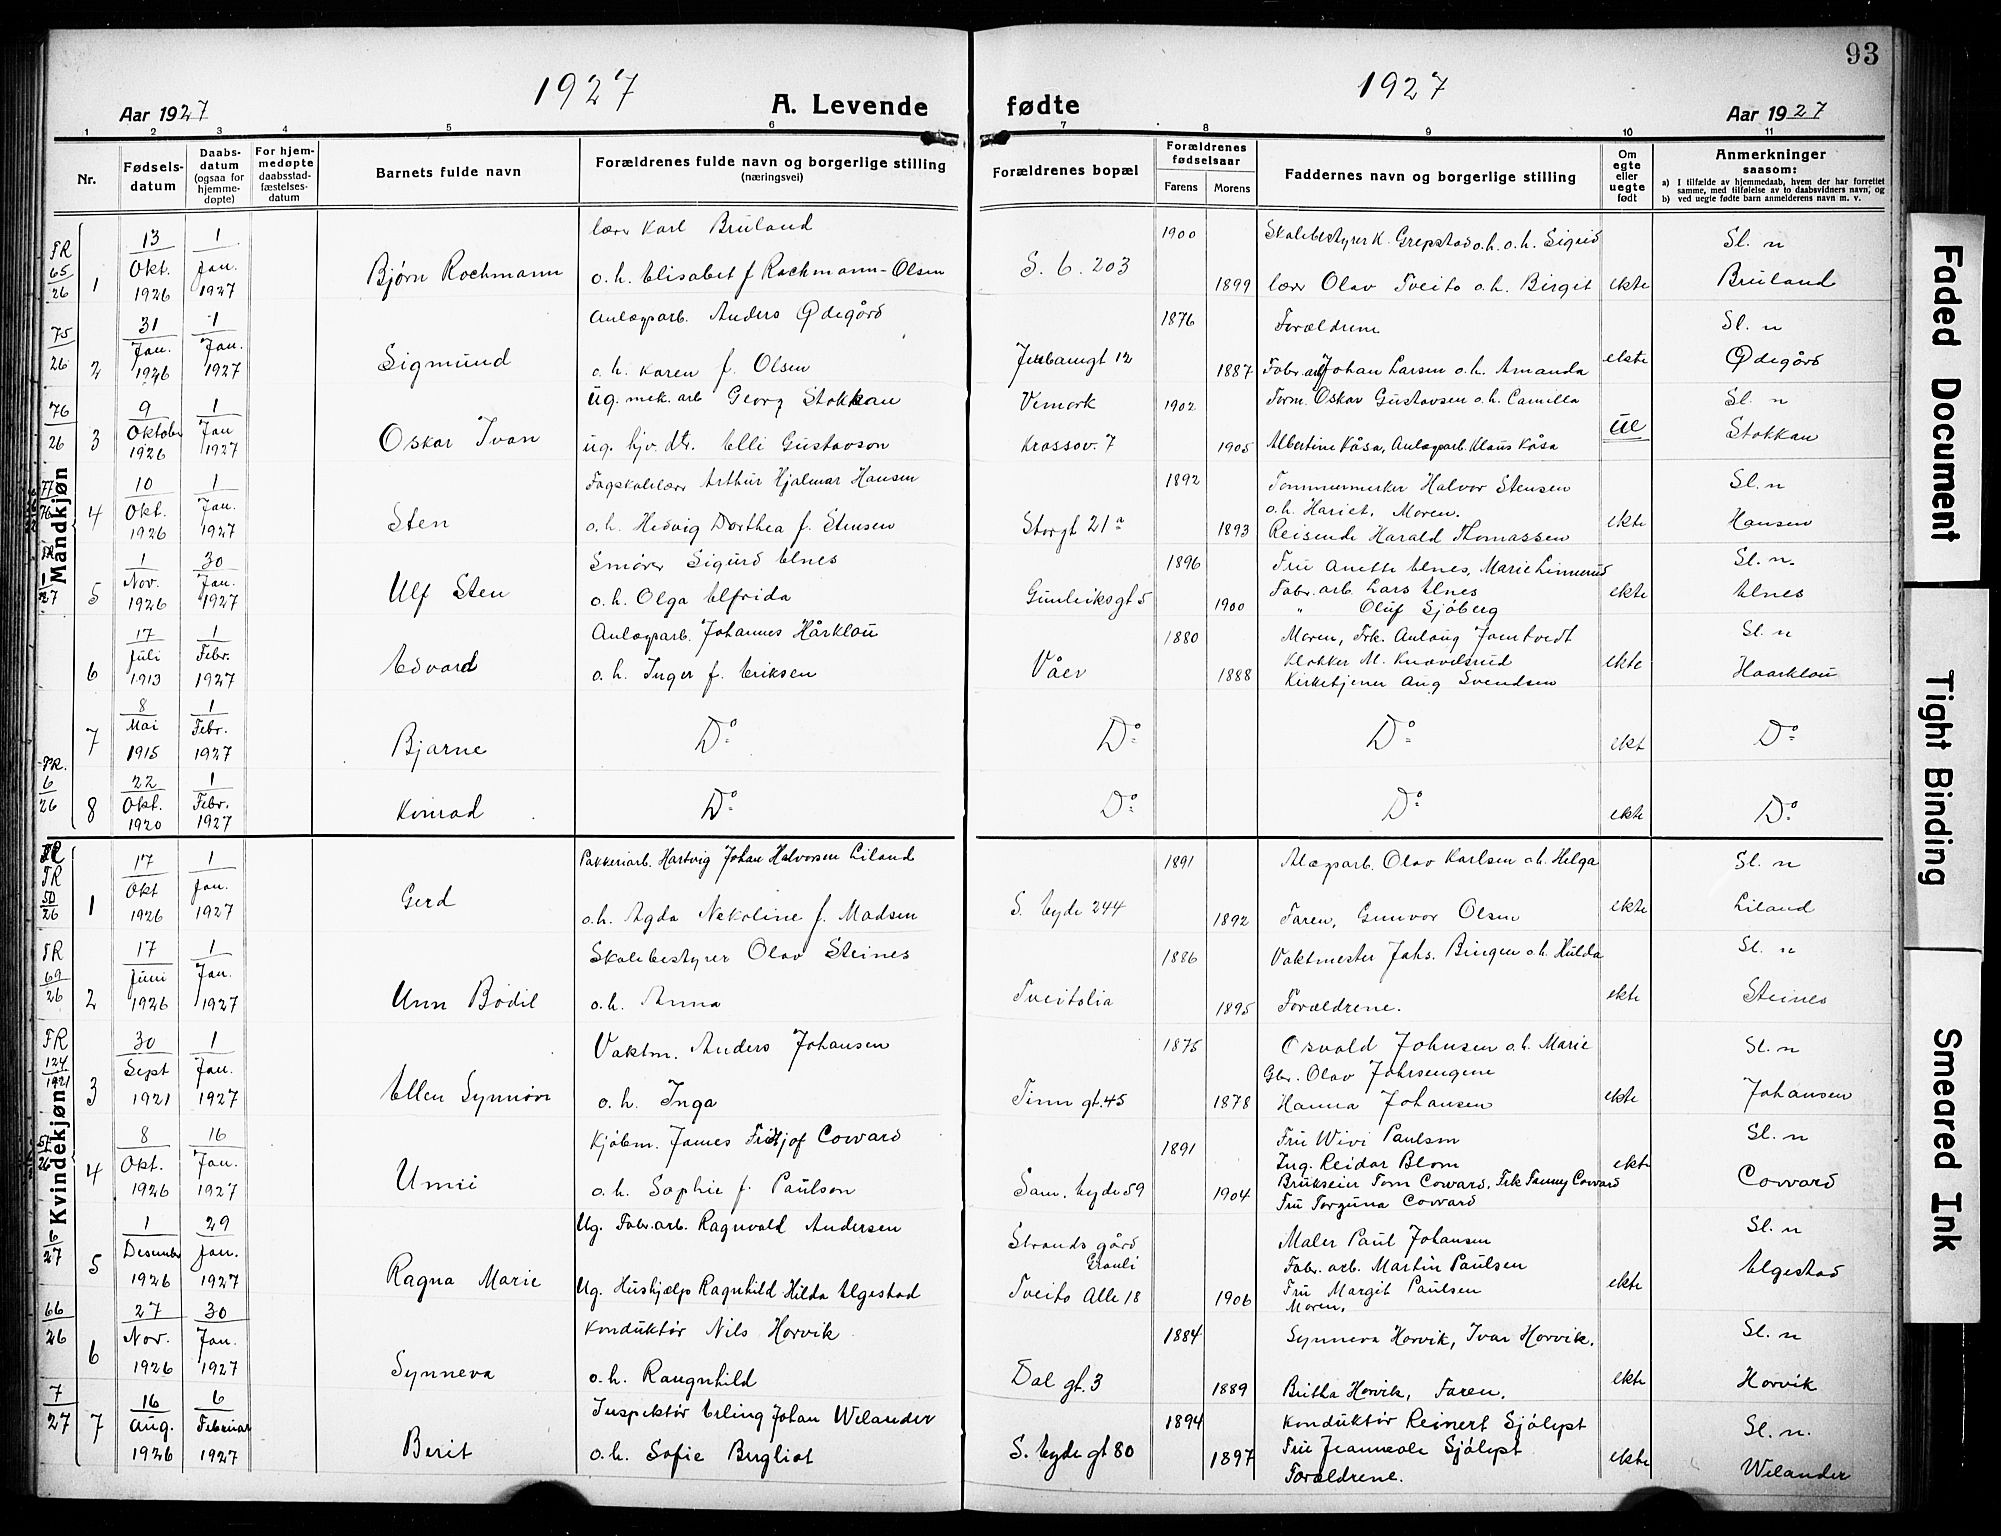 93
1927
1927
Aar 1927
A. Levende
fødte
Aar 1927
1 2 3 4 5 6 7 8 9 10 11
Nr.
Fødsels-
datum
Daabs-
datum
(ogsaa for
hjemme-
døpte)
For hjem-
medøpte
daabsstad-
fæstelses-
datum
Barnets fulde navn
Forældrenes fulde navn og borgerlige stilling
(næringsvei)
Forældrenes bopæl
Forældrenes
fødselsaar
Farens Morens
Faddernes navn og borgerlige stilling
Om
egte
eller
uegte
født
Anmerkninger
saasom:
a) I tilfælde av hjemmedaab, hvem der har forrettet
samme, med tilføielse av to daabsvidners navn, og
b) ved uegte fødte barn anmelderens navn m. v.
Mandkjøn
FR 65/26 1
13 Okt. 1926
1 Jan. 1927
Bjørn Rochmann
lærer Karl Bruland
o. h. Elisabet f. Rochmann-Olsen
S. 6. 203
1900 1899
Skolebestyrer K. Grepstad o. h. o. h. Sigrid
lærer Olav Tveito o. h. Birgit
ekte
Sl. n
Bruland
75/26 2
31 Jan. 1926
1 Jan. 1927
Sigmund
Anlægsarb. Anders Ødegård
o. h. Karen f. Olsen
Jernbanegt 12
1876 1887
Forældrene
Fabr. arb. Johan Larsen o. h. Amanda
ekte
Sl. n
Ødegård
76/26 3
9 Oktober 1926
1 Jan 1927
Oskar Ivan
ug. mek. arb Georg Stokkan
ug. hjv. dtr. Elli Gustavson
Vemork
Krossov. 7
1902 1905
Form. Oskar Gustavsen o. h. Camilla
Albertine Kåsa, Anlægsarb. Klaus Kåsa
UE
Sl. n
Stokkan
77/26 4
10 Okt. 1926
1 Jan. 1927
Sten
Fagskolelærer Arthur Hjalmar Hansen
o. h. Hedvig Dorthea f. Stensen
Storgt 21a
1892 1893
Tømmermerker Halvor Stensen
o. h. Hariet, Moren.
Reisende Harald Thomassen
ekte
Sl. n
Hansen
FR 1/27 5
1 Nov. 1926
30 Jan. 1927
Ulf Sten
Smører Sigurd Elnes
o. h. Olga Elfrida
Gunleiksgt 5
1896 1900
Fru Anette Elnes, Marie Linnerud
Fabr. arb. Lars Elnes
" Oluf Sjøberg
ekte
Sl. n.
Elnes
6
17 Juli 1913
1 Febr. 1927
Edvard
Anlægsarb. Johannes Hårklau
o. h. Inger f. Eriksen
Våer
1880 1888
Moren, Frk. Anlaug Jomtvedt
Klokker M. Knavelsrud
Kirketjener Aug Svendsen
ekte
Sl. n
Haarklau
7
8 Mai 1915
1 Febr. 1927
Bjarne
Do
Do
Do
ekt
Do
FR. 6/26 8
22 Okt. 1920
1 Febr. 1927
Konrad
Do
Do
Do
ekte
Do
Kvindekjøn
FR 50/26 1
17 Okt 1926
1 Jan. 1927
Gerd
Pakkeriarb. Hartvig Johan Halvorsen Liland
o. h. Agda Nekoline f. Madsen
S. Eyde 244
1891 1892
Alægsarb. Olav Karlsen o. h. Helga
Faren, Gunvor Olsen
ekte
Sl. n
Liland
FR 69/26 2
17 Juni 1926
1 Jan. 1927
Unn Bodil
Skolebestyrer Olav Steines
o. h. Anna
Tveitolia
1886 1895
Vaktmester Johs. Bingen o. h. Hulda
Forældrene.
ekte
Sl. n
Steines
FR 124/1921 3
30 Sept 1921
1 Jan. 1927
Ellen Synnøve
Vaktm. Anders Johansen
o. h. Inga
Tinn gt. 45
1875 1878
Osvald Johnsen o. h. Marie
Gbr. Olav Johrsengene
Hanna Johansen
ekte
Sl. n
Johansen
57/26 4
8 Okt. 1926
16 Jan. 1927
Unni
Kjøbm. James Fritjof Coward
o. h. Sophie f. Paulson
Sam. Eyde 59
1891 1904
Fru Wivi Paulsen
Ing. Reidar Blom
Brukseier Tom Coward, Frk Fanny Coward
Fru Torguna Coward
ekte
Sl. n
Coward
6/27 5
1 Desember 1926
29 Jan. 1927
Ragna Marie
Ug. Fabr. arb. Ragnvald Andersen
Ug. Hushjælp Ragnhild Hilda Elgestad
Strands gård
Grauli
Tveito Alle 18
1906
Maler Paul Johansen
Fabr. arb. Martin Paulsen
Fru Margit Paulsen
Moren,
ekte
Sl. n
Elgestad
66/26 6
27 Nov. 1926
30 Jan. 1927
Synneva
Konduktør Nils Horvik
o. h. Raugnhild
Dal gt. 3
1884 1889
Synneva Horvik, Ivar Horvik.
Britha Horvik, Faren.
ekte
Sl. n
Horvik
7/27 7
16 Aug. 1926
6 Februar 1927
Berit
Inspektør Erling Johan Welander
o. h. Sofie Bergliot
S. Eyde gt 80
1894 1897
Konduktør Reinert Sjølyst
Fru Jeanneole Sjølyst
Forældrene.
ekte
Sl. n.
Welander
Faded Document
Tight Binding
Smeared Ink